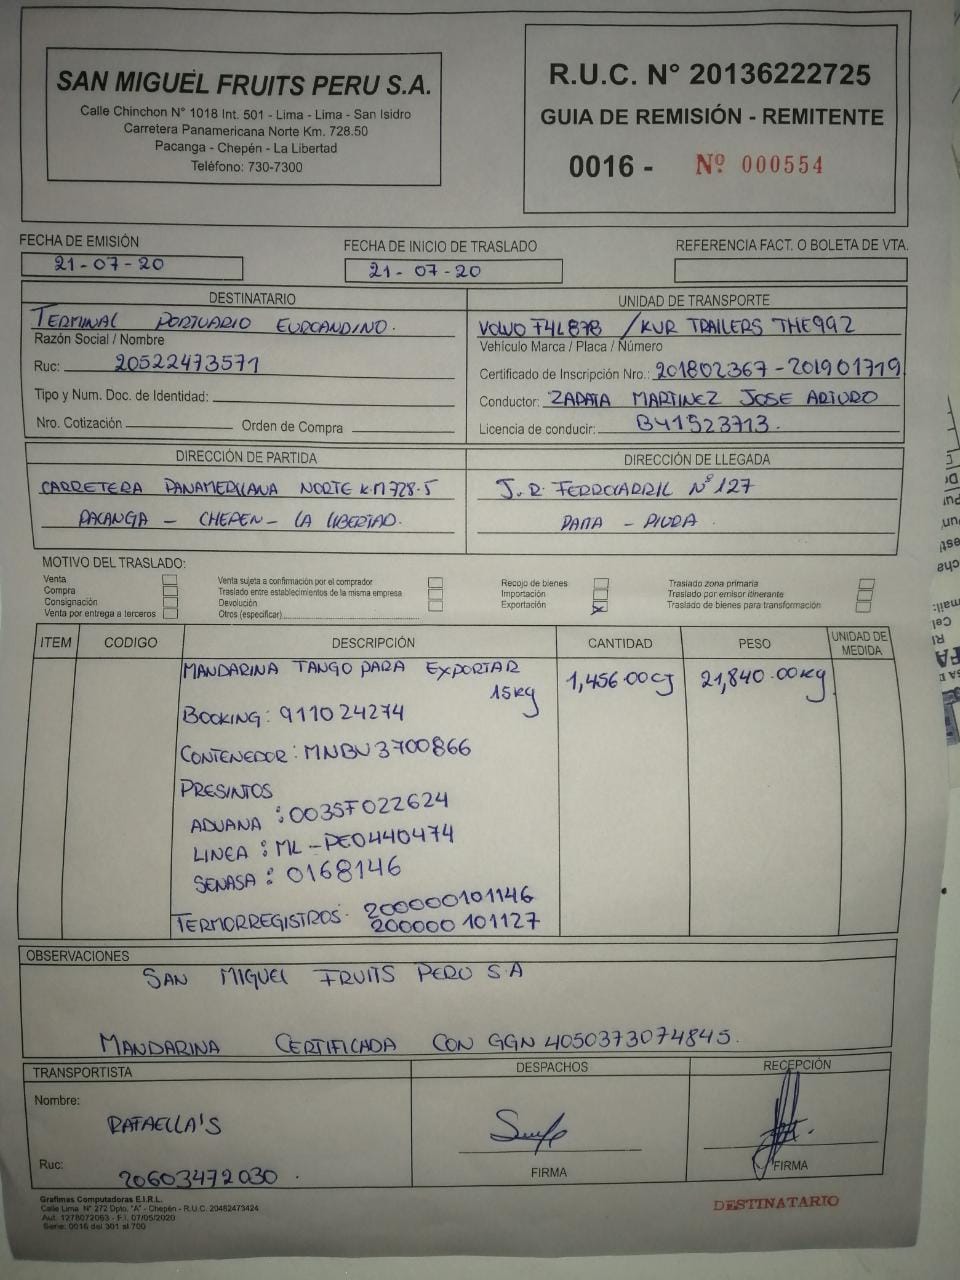 SAN MIGUEL FRUITS PERU S.A.
Calle Chinchon N° 1018 Int. 501 - Lima - Lima - San Isidro
Carretera Panamericana Norte Km. 728.50
Pacanga - Chepén - La Libertad
Teléfono: 730-7300
R.U.C. N° 20136222725
GUIA DE REMISIÓN - REMITENTE
0016 - Nº 000554
FECHA DE EMISIÓN
21-07-20
FECHA DE INICIO DE TRASLADO
21-07-20
REFERENCIA FACT. O BOLETA DE VTA.
DESTINATARIO
TERMINAL PORTUARIO EUROANDINO.
Razón Social / Nombre
Ruc: 20522473571
Tipo y Num. Doc. de Identidad:
Nro. Cotización Orden de Compra
UNIDAD DE TRANSPORTE
VOLVO F4L878 / KUR TRAILERS THE992
Vehículo Marca / Placa / Número
Certificado de Inscripción Nro.: 201802367 - 201901719
Conductor: ZAPATA MARTINEZ JOSE ARTURO
Licencia de conducir: B41523713.
DIRECCIÓN DE PARTIDA
CARRETERA PANAMERICANA NORTE KM 728.5
PACANGA - CHEPEN - LA LIBERTAD.
DIRECCIÓN DE LLEGADA
J.R. FERROCARRIL N° 127
PAITA - PIURA
MOTIVO DEL TRASLADO:
Venta
Compra
Consignación
Venta por entrega a terceros
Venta sujeta a confirmación por el comprador
Traslado entre establecimientos de la misma empresa
Devolución
Otros (especificar)
Recojo de bienes
Importación
Exportación X
Traslado zona primaria
Traslado por emisor itinerante
Traslado de bienes para transformación
ITEM CODIGO DESCRIPCIÓN CANTIDAD PESO UNIDAD DE MEDIDA
MANDARINA TANGO PARA EXPORTAR 1,456.00CJ 21,840.00Kg
15Kg
BOOKING: 911024274
CONTENEDOR: MNBU3700866
PRESINTOS
ADUANA : 003SF022624
LINEA : ML-PE0440474
SENASA : 0168146
TERMORREGISTROS: 200000101146
200000101127
OBSERVACIONES
SAN MIGUEL FRUITS PERU S.A
MANDARINA CERTIFICADA CON GGN 4050373074845.
TRANSPORTISTA
Nombre:
RAFAELLA'S
Ruc:
20603472030.
DESPACHOS
FIRMA
RECEPCIÓN
FIRMA
Grafimas Computadoras E.I.R.L.
Calle Lima N° 272 Dpto. "A" - Chepén - R.U.C. 20482473424
Aut. 1278072063 - F.I. 07/05/2020
Serie: 0016 del 301 al 700
DESTINATARIO